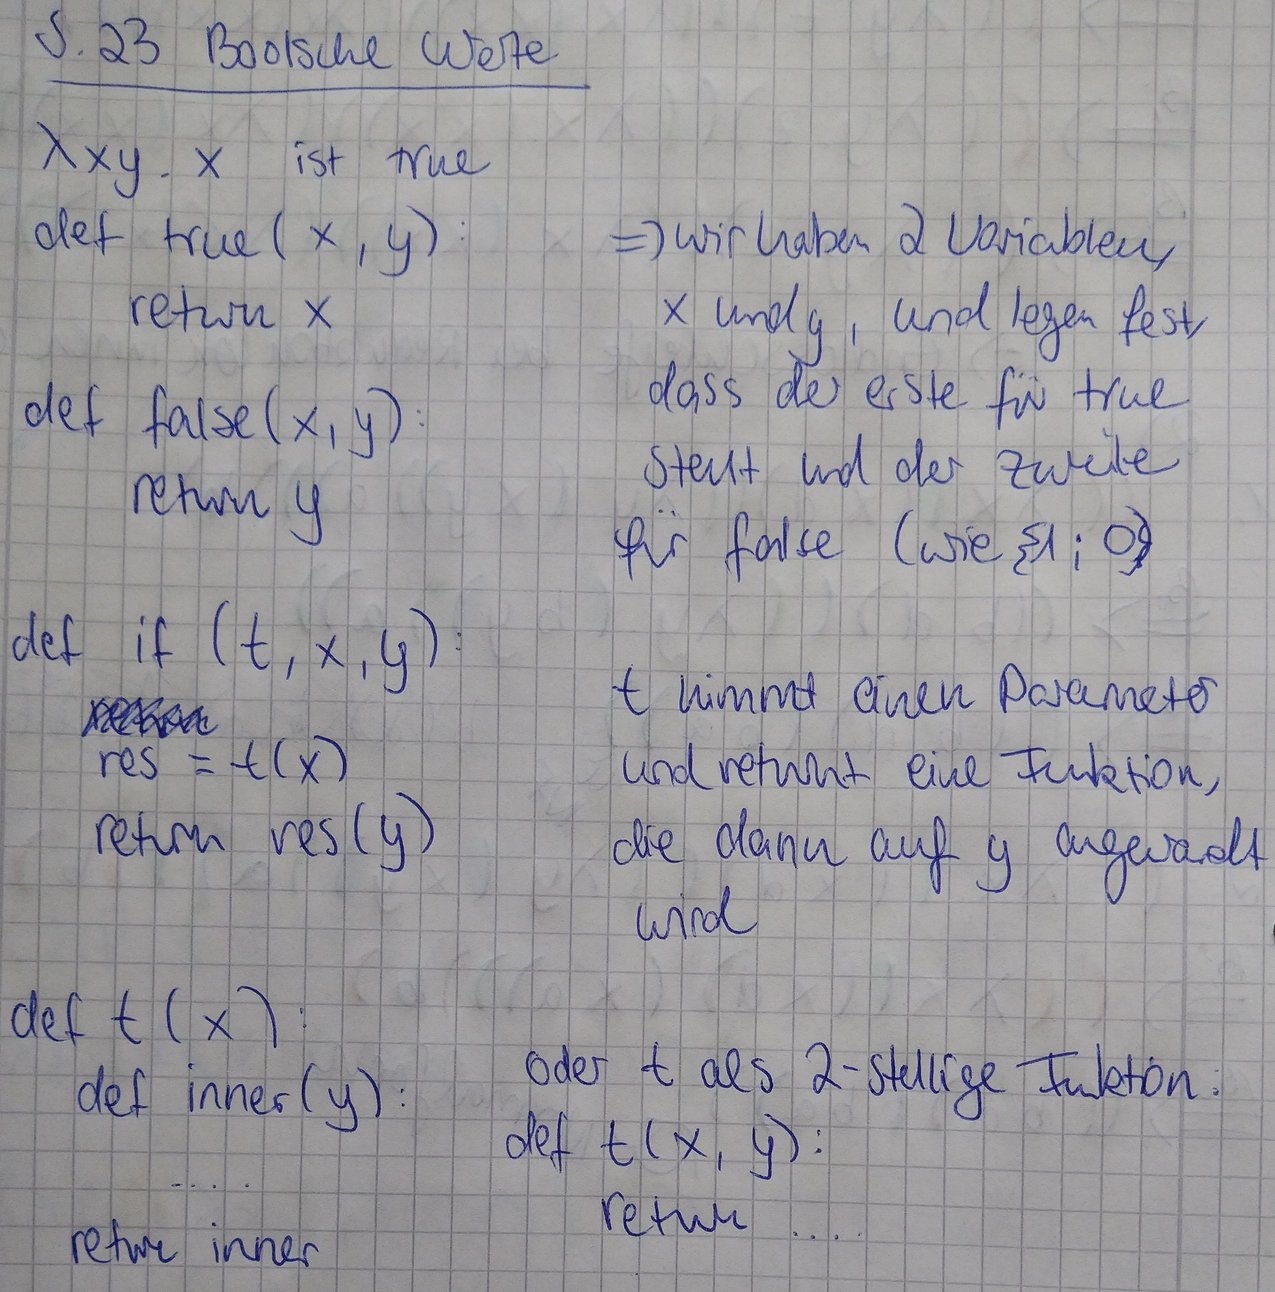 S. 23 Boolsche Werte
λxy. x ist true
def true(x, y):
return x
def false(x, y):
return y
⇒ wir haben 2 Variablen,
x und y, und legen fest,
dass der erste für true
steht und der zweite
für false (wie {1; 0})
def if (t, x, y):
res = t(x)
return res(y)
t nimmt einen Parameter
und returnt eine Funktion,
die dann auf y angewandt
wird
def t(x):
def inner(y):
.....
return inner
oder t als 2-stellige Funktion:
def t(x, y):
return ....